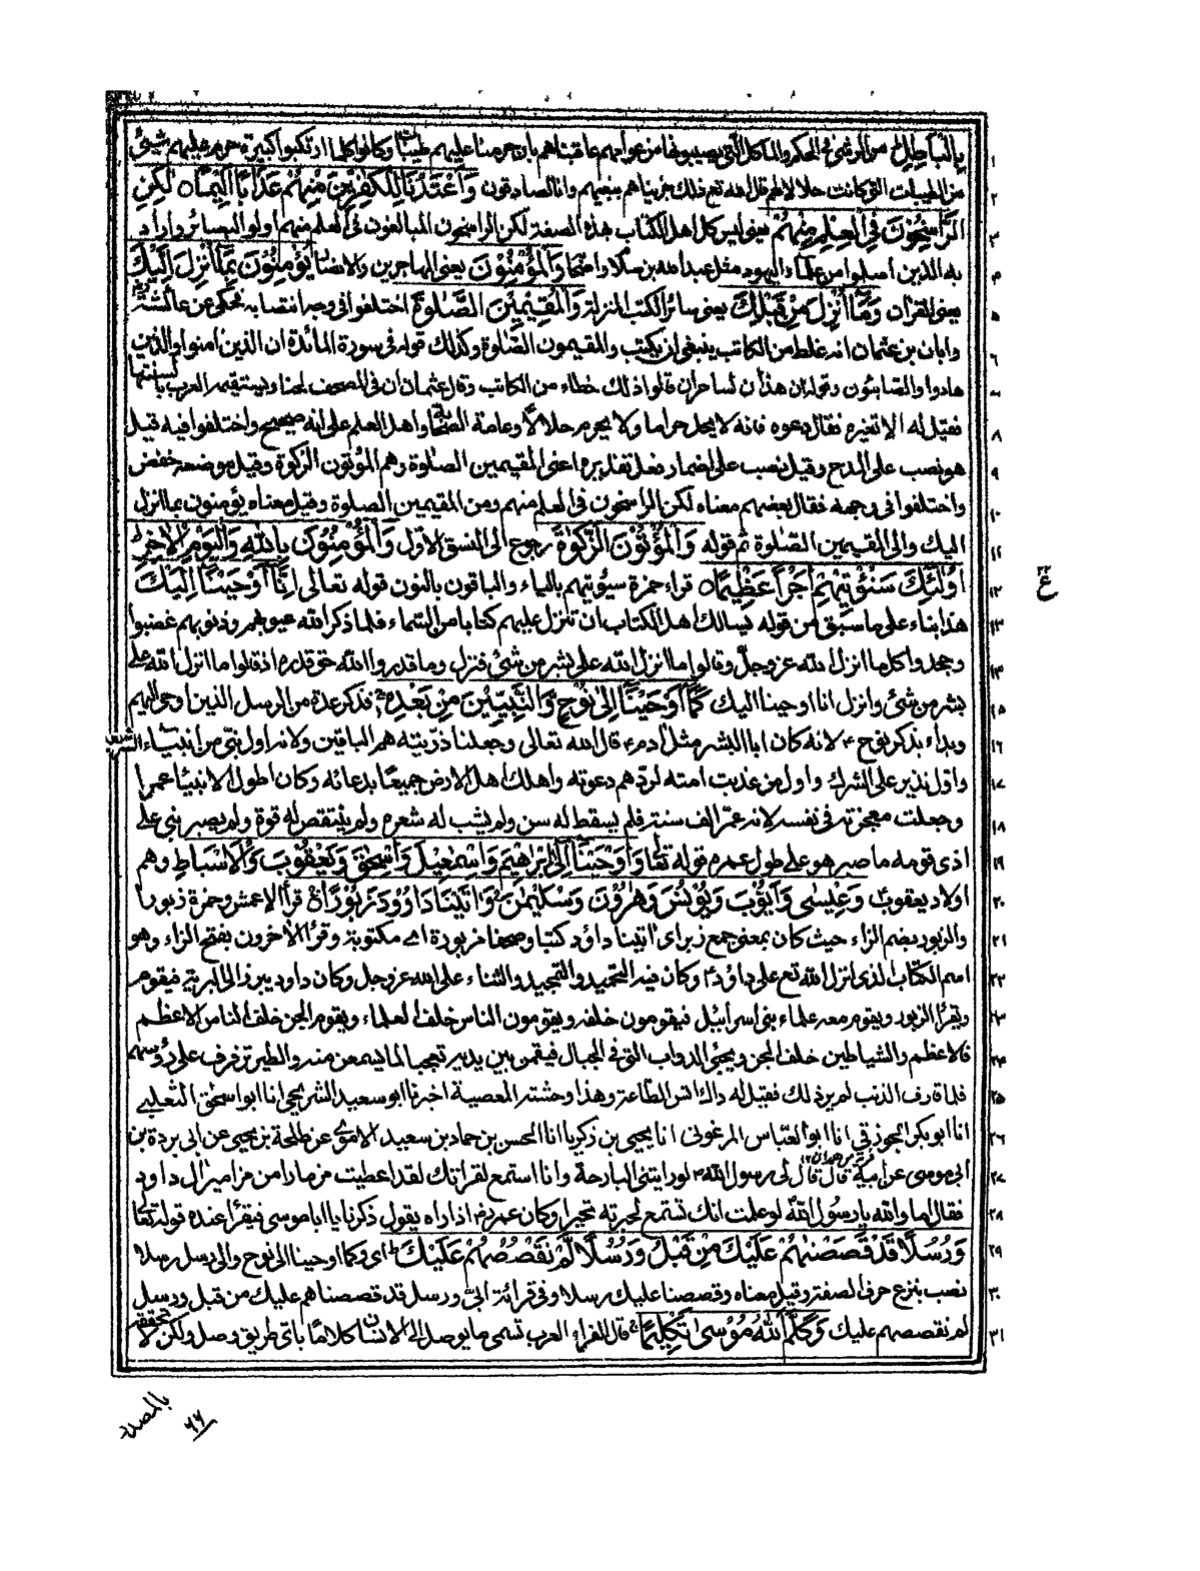 بِالْبَاطِلِ من الرشى فى الحكم والمأكل التى يصيبونها من عوامهم عاقبناهم بان حرمنا عليهم طيبات وكانوا كلما ارتكبوا كبيرة حرم عليهم شئ
من الطيبات التى كانت حلالا لهم قال الله تع ذلك جزيناهم ببغيهم وانا لصادقون وَاَعْتَدْنَا لِلْكٰفِرِيْنَ مِنْهُمْ عَذَابًا اَلِيْمًا لٰكِنِ
الرَّاسِخُوْنَ فِى الْعِلْمِ مِنْهُمْ يعنى ليس كل اهل الكتاب بهذه الصفة لكن الراسخون المبالغون فى العلم منهم اولو البصائر واراد
به الذين اسلموا من علماء اليهود مثل عبد الله بن سلام واصحابه وَالْمُؤْمِنُوْنَ يعنى المهاجرين والانصار يُؤْمِنُوْنَ بِمَا اُنْزِلَ اِلَيْكَ
يعنى القرآن وَمَا اُنْزِلَ مِنْ قَبْلِكَ يعنى سائر الكتب المنزلة وَالْمُقِيْمِيْنَ الصَّلٰوةَ اختلفوا فى وجه انتصابه فحكى عن عائشة
وابان بن عثمان انه غلط من الكاتب ينبغى ان يكتب والمقيمون الصلوة وكذلك قوله فى سورة المائدة ان الذين امنوا والذين
هادوا والصابئون وقوله ان هذان لساحران قالوا ذلك خطاء من الكاتب وقال عثمان ان فى المصحف لحنا ويستقيمه العرب بالسنتها
فقيل له الا تغيره فقال دعوه فانه لا يحل حراما ولا يحرم حلالًا وعامة الصحابة واهل العلم على انه صحيح واختلفوا فيه قيل
هو نصب على المدح وقيل نصب على اضمار فعل تقديره اعنى المقيمين الصلوة وهم المؤتون الزكوة وقيل موضعه خفض
واختلفوا فى وجهه فقال بعضهم معناه لكن الراسخون فى العلم منهم ومن المقيمين الصلوة وقيل معناه يؤمنون بما انزل
اليك والى المقيمين الصلوة ثم قوله وَالْمُؤْتُوْنَ الزَّكٰوةَ رجوع الى النسق الاول وَالْمُؤْمِنُوْنَ بِاللهِ وَالْيَوْمِ الْاٰخِرِ
اُولٰٓئِكَ سَنُؤْتِيْهِمْ اَجْرًا عَظِيْمًا قراء حمزة سيؤتيهم بالياء والباقون بالنون قوله تعالى اِنَّآ اَوْحَيْنَآ اِلَيْكَ
هذا بناء على ما سبق من قوله يسالك اهل الكتاب ان تنزل عليهم كتابا من السماء فلما ذكر الله عيوبهم وذنوبهم غضبوا
وجحدوا كل ما انزل الله عز وجل وقالوا ما انزل الله على بشر من شئ فنزل وما قدروا الله حق قدره اذ قالوا ما انزل الله على
بشر من شئ وانزل انا اوحينا اليك كَمَآ اَوْحَيْنَآ اِلٰى نُوْحٍ وَّالنَّبِيّٖنَ مِنْ بَعْدِهٖ فذكر عدة من الرسل الذين اوحى اليهم
وبداء بذكر نوح ؑ لانه كان ابا البشر مثل ادم ؑ قال الله تعالى وجعلنا ذريته هم الباقين ولانه اول نبى من انبياء الشريعة
واول نذير على الشرك واول من عذبت امته لردهم دعوته واهلك اهل الارض جميعًا بدعائه وكان اطول الانبياء عمرا
وجعلت معجزته فى نفسه لانه عمّر الف سنة فلم يسقط له سن ولم يشب له شعره ولم ينتقص له قوة ولم يصبر نبى على
اذى قومه ما صبر هو على طول عمره قوله تعا وَاَوْحَيْنَآ اِلٰٓى اِبْرٰهِيْمَ وَاِسْمٰعِيْلَ وَاِسْحٰقَ وَيَعْقُوْبَ وَالْاَسْبَاطِ وهم
اولاد يعقوب وَعِيْسٰى وَاَيُّوْبَ وَيُوْنُسَ وَهٰرُوْنَ وَسُلَيْمٰنَ وَاٰتَيْنَا دَاوٗدَ زَبُوْرًا قرأ الاعمش وحمزة زبورا
والزبور بضم الزاء حيث كان بمعنى جمع زبر اى اتينا داؤد كتبا وصحفا مزبورة اى مكتوبة وقرأ الآخرون بفتح الزاء وهو
اسم الكتاب الذى انزل الله تع على داؤد ؑ وكان فيه التحميد والتمجيد والثناء على الله عز وجل وكان داود يبرز الى البرية فيقوم
ويقرأ الزبور ويقوم معه علماء بنى اسرائيل فيقومون خلفه ويقومون الناس خلف العلماء ويقوم الجن خلف الناس الاعظم
فالاعظم والشياطين خلف الجن ويجئ الدواب التى فى الجبال فيقمن بين يديه تعجبا لما يسمعن منه والطير ترفرف على رؤسهم
فلما قارف الذنب لم ير ذلك فقيل له ذاك انس الطاعة وهذا وحشة المعصية اخبرنا ابو سعيد الشريحى انا ابو اسحق الثعلبى
انا ابو بكر الجوزقى انا ابو العباس المرغولى انا يحيى بن زكريا انا الحسن بن حماد بن سعيد الاموى عن طلحة بن يحيى عن ابى بردة بن
ابى موسى عن ابيه قال قال لى رسول الله ؐ لو رايتنى البارحة وانا استمع لقراتك لقد اعطيت مزمارا من مزامير ال داود
فقال اما والله يا رسول الله لو علمت انك تستمع لحبرته تحبيرا وكان عمر رضـ اذا راه يقول ذكرنا يا ابا موسى فيقرأ عنده قوله تعا
وَرُسُلًا قَدْ قَصَصْنٰهُمْ عَلَيْكَ مِنْ قَبْلُ وَرُسُلًا لَّمْ نَقْصُصْهُمْ عَلَيْكَ اى وكما اوحينا الى نوح والى رسل رسلا
نصب بنزع حرف الصفة وقيل معناه وقصصنا عليك رسلا وفى قرائة ابىّ ورسل قد قصصناهم عليك من قبل ورسل
لم نقصصهم عليك وَكَلَّمَ اللهُ مُوْسٰى تَكْلِيْمًا قال الفراء العرب تسمى ما يوصل الى الانسان كلامًا باى طريق وصل ولكن لا تحققه
٢٢
ع
٦٦